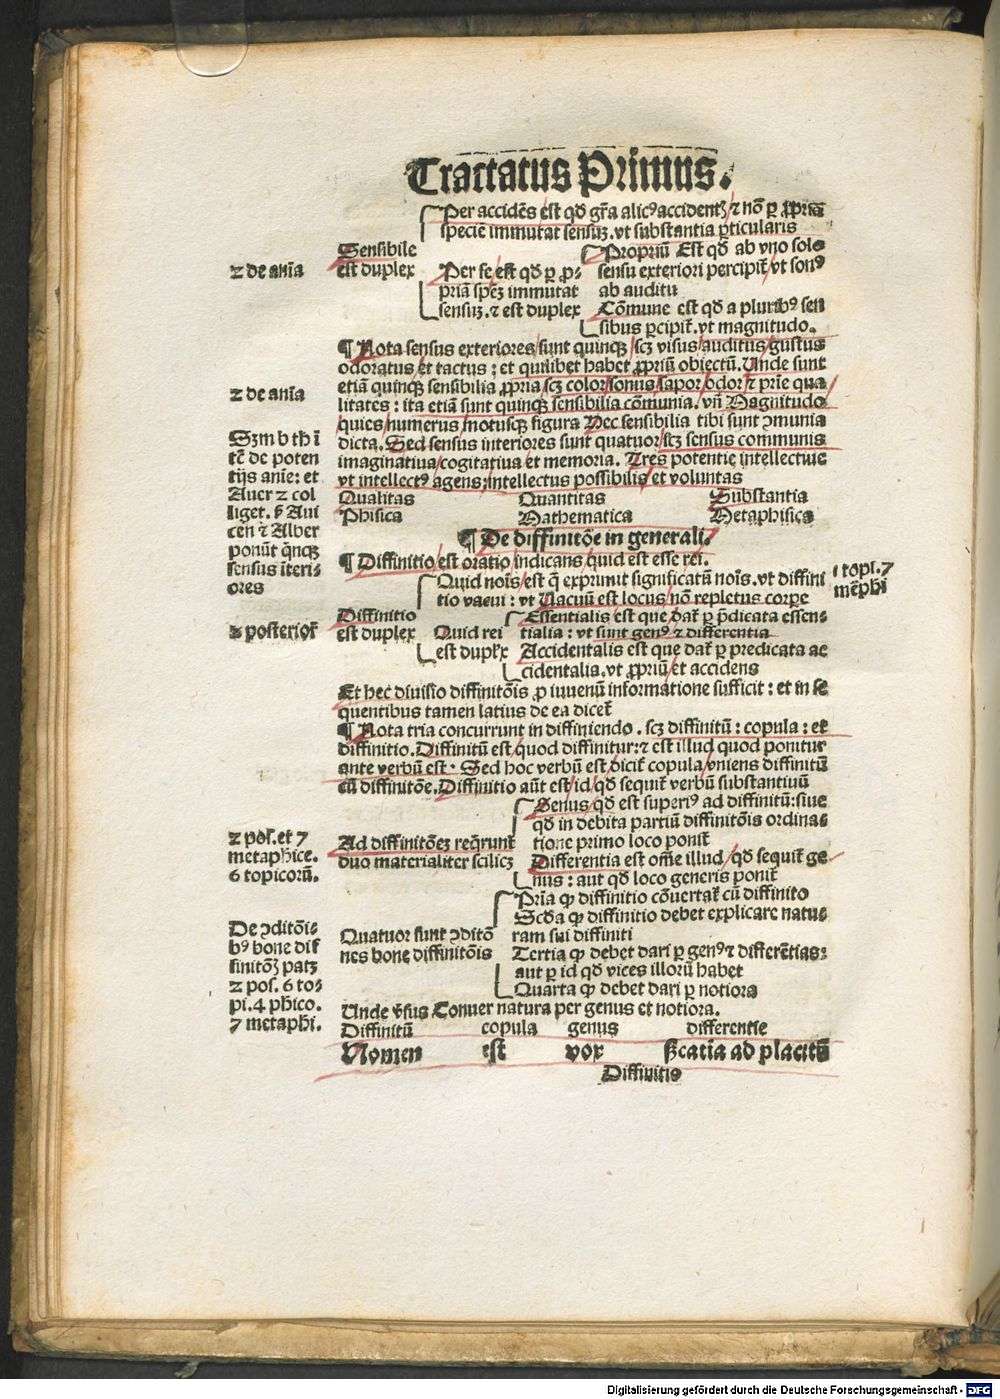 Tractatus Primus.
Per accidēs est qđ gr̄a alicꝰ accidentꝫ ⁊ nō ꝑ ꝓpriā
speciē immutat sensuꝫ. vt substantia ꝑticularis
Sensibile
est duplex
2 de aīa
Per se est qđ ꝑ ꝓ-
priā speꝫ immutat
sensuꝫ. ⁊ est duplex
Propriū Est qđ ab vno solo
sensu exteriori percipit̄ vt sonꝰ
ab auditu
Cōmune est qđ a pluribꝰ sen
sibus ꝑcipit̄. vt magnitudo.
¶ Nota sensus exteriores sunt quinqꝫ / scꝫ visus / auditus / gustus
odoratus et tactus : et quilibet habet ꝓpriū obiectū. Unde sunt
etiā quinqꝫ sensibilia ꝓpria scꝫ color / sonus / sapor / odor ⁊ prīe qua
2 de aīa
litates : ita etiā sunt quinqꝫ sensibilia cōmunia. vn̄ Magnitudo
quies / numerus / motusqꝫ figura Hec sensibilia tibi sunt ꝯmunia
dicta. Sed sensus interiores sunt quatuor / scꝫ sensus communis
imaginatiua / cogitatiua et memoria. Tres potentie intellectiue
vt intellectꝰ agens / intellectus possibilis / et voluntas
Sꝫm b th ī
tc̄ de poten
tijs anīe: et
Auer 2 col
liget. ẜ Aui
cen ⁊ Alber
ponūt qnqꝫ
sensus īteri-
ores
Qualitas Quantitas Substantia
Phisica Mathematica Metaphisica
¶ De diffinitōe in generali.
¶ Diffinitio / est oratio / indicans / quid est esse rei.
Quid noīs / est q̄ exprimit significatū noīs. vt diffini
tio vacui : vt Vacuū est locus / nō repletus corpe
1 topi. 7
mēphi
Diffinitio
est duplex
2 posterioꝝ
Quid rei
est duplex
Essentialis est que dat̄ ꝑ p̄dicata essen-
tialia : vt sunt genꝰ ⁊ differentia
Accidentalis est que dat̄ ꝑ predicata ac
cidentalia. vt ꝓpriū / et accidens
Et hec diuisio diffinitōis ꝓ iuuenū informatione sufficit : et in se
quentibus tamen latius de ea dicet̄
¶ Nota tria concurrunt in diffiniendo . scꝫ diffinitū : copula : et
diffinitio. Diffinitū est / quod diffinitur: ⁊ est illud quod ponitur
ante verbū est . Sed hoc verbū est dicit̄ copula / vniens diffinitū
cū diffinitōe. Diffinitio aūt est / id / qđ sequit̄ verbū substantiuū
Ad diffinitōeꝫ reqrunt̄
duo materialiter scilicꝫ
2 pos̄. et 7
metaphice.
6 topicorū.
Genus / qđ est superiꝰ ad diffinitū: siue
qđ in debita partiū diffinitōis ordina-
tione primo loco ponit̄
Differentia est om̄e illud / qđ sequit̄ ge
nus : aut qđ loco generis ponit̄
Quatuor sunt ꝯditō
nes bone diffinitōis
De ꝯditōi-
bꝰ bone dif
finitōꝫ patꝫ
2 pos. 6 to-
pi. 4 phico.
7 metaphi.
Prīa ꝙ diffinitio cōuertat̄ cū diffinito
Scđa ꝙ diffinitio debet explicare natu-
ram sui diffiniti
Tertia ꝙ debet dari ꝑ genꝰ ⁊ differētias:
aut ꝑ id qđ vices illorū habet
Quarta ꝙ debet dari ꝑ notiora
Unde v̄sus Conuer natura per genus et notiora.
Diffinitū copula genus differentie
Nomen est vox sc̄atiua ad placitū
Diffinitio
Digitalisierung gefördert durch die Deutsche Forschungsgemeinschaft - DFG